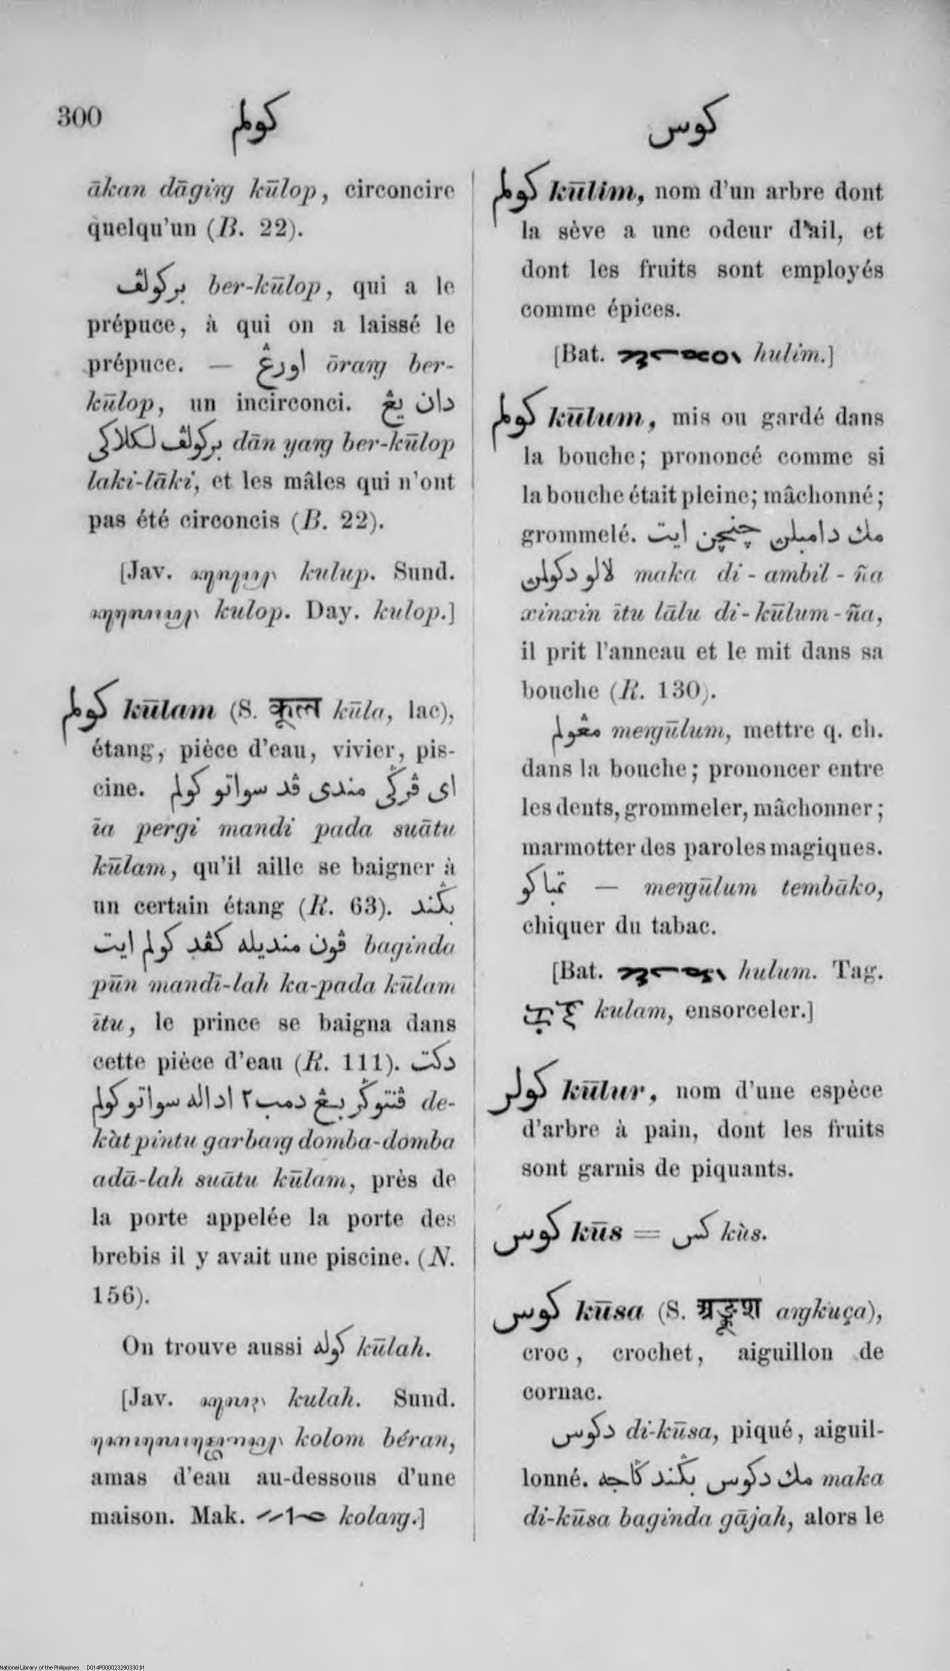 300
كولم
كوس
ākan dāgiŋ kūlop, circoncire
quelqu'un (B. 22).
بركولڤ ber-kūlop, qui a le
prépuce, à qui on a laissé le
prépuce. — اورڠ ōraŋ ber-
kūlop, un incirconci. دان يڠ
بركولڤ لكلاكي dān yaŋ ber-kūlop
laki-lāki, et les mâles qui n'ont
pas été circoncis (B. 22).
[Jav. kulup. Sund.
kulop. Day. kulop.]
كولم kūlam (S. कूल kūla, lac),
étang, pièce d'eau, vivier, pis-
cine. اى ڤرݢي مندى ڤد سواتو كولم
īa pergi mandi pada suātu
kūlam, qu'il aille se baigner à
un certain étang (R. 63). بݢند
ڤون منديله كڤد كولم ايت baginda
pūn mandī-lah ka-pada kūlam
ītu, le prince se baigna dans
cette pièce d'eau (R. 111). دكت
ڤنتو ݢربڠ دمب٢ اداله سواتو كولم de-
kàt pintu garbaŋ domba-domba
adā-lah suātu kūlam, près de
la porte appelée la porte des
brebis il y avait une piscine. (N.
156).
On trouve aussi كوله kūlah.
[Jav. kulah. Sund.
kolom béran,
amas d'eau au-dessous d'une
maison. Mak. kolaŋ.]
كولم kūlim, nom d'un arbre dont
la sève a une odeur d'ail, et
dont les fruits sont employés
comme épices.
[Bat. hulim.]
كولم kūlum, mis ou gardé dans
la bouche; prononcé comme si
la bouche était pleine; mâchonné;
grommelé. مك دامبلن چنچن ايت
لالو دكولمن maka di-ambil-ña
xinxin ītu lālu di-kūlum-ña,
il prit l'anneau et le mit dans sa
bouche (R. 130).
مڠولم meŋūlum, mettre q. ch.
dans la bouche; prononcer entre
les dents, grommeler, mâchonner;
marmotter des paroles magiques.
تمباكو — meŋūlum tembāko,
chiquer du tabac.
[Bat. hulum. Tag.
kulam, ensorceler.]
كولر kūlur, nom d'une espèce
d'arbre à pain, dont les fruits
sont garnis de piquants.
كوس kūs = كس kùs.
كوس kūsa (S. अङ्कुश aŋkuça),
croc, crochet, aiguillon de
cornac.
دكوس di-kūsa, piqué, aiguil-
lonné. مك دكوس بݢند ݢاجه maka
di-kūsa baginda gājah, alors le
National Library of the Philippines